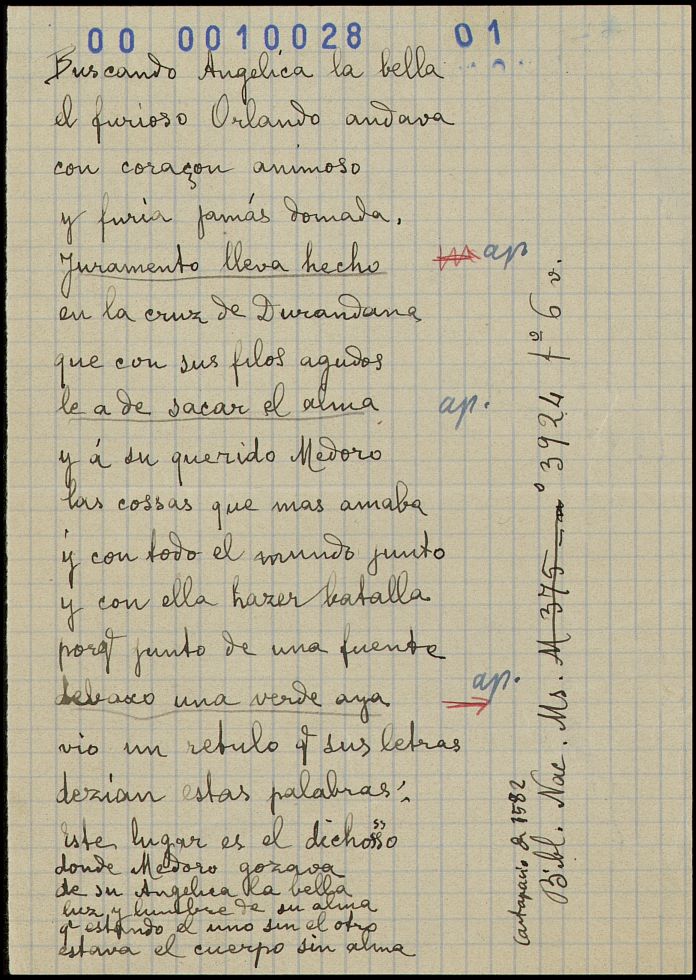 00 0010028 01
Buscando Angelica la bella
el furioso Orlando andava
con coraçon animoso
y furia jamás domada.
Juramento lleva hecho
ap
en la cruz de Durandana
que con sus filos agudos
le a de sacar el alma
ap.
y á su querido Medoro
las cossas que mas amaba
y con todo el mundo junto
y con ella hazer batalla
porq̃ junto de una fuente
debaxo una verde aya
ap.
vio un retulo q̃ sus letras
dezian estas palabras:
Este lugar es el dichosso
donde Medoro gozava
de su Angelica la bella
luz y lumbre de su alma
q̃ estando el uno sin el otro
estava el cuerpo sin alma
Cartapacio de 1582
Bibl. Nac. Ms. M 375 nº 3924 fº 6 v.